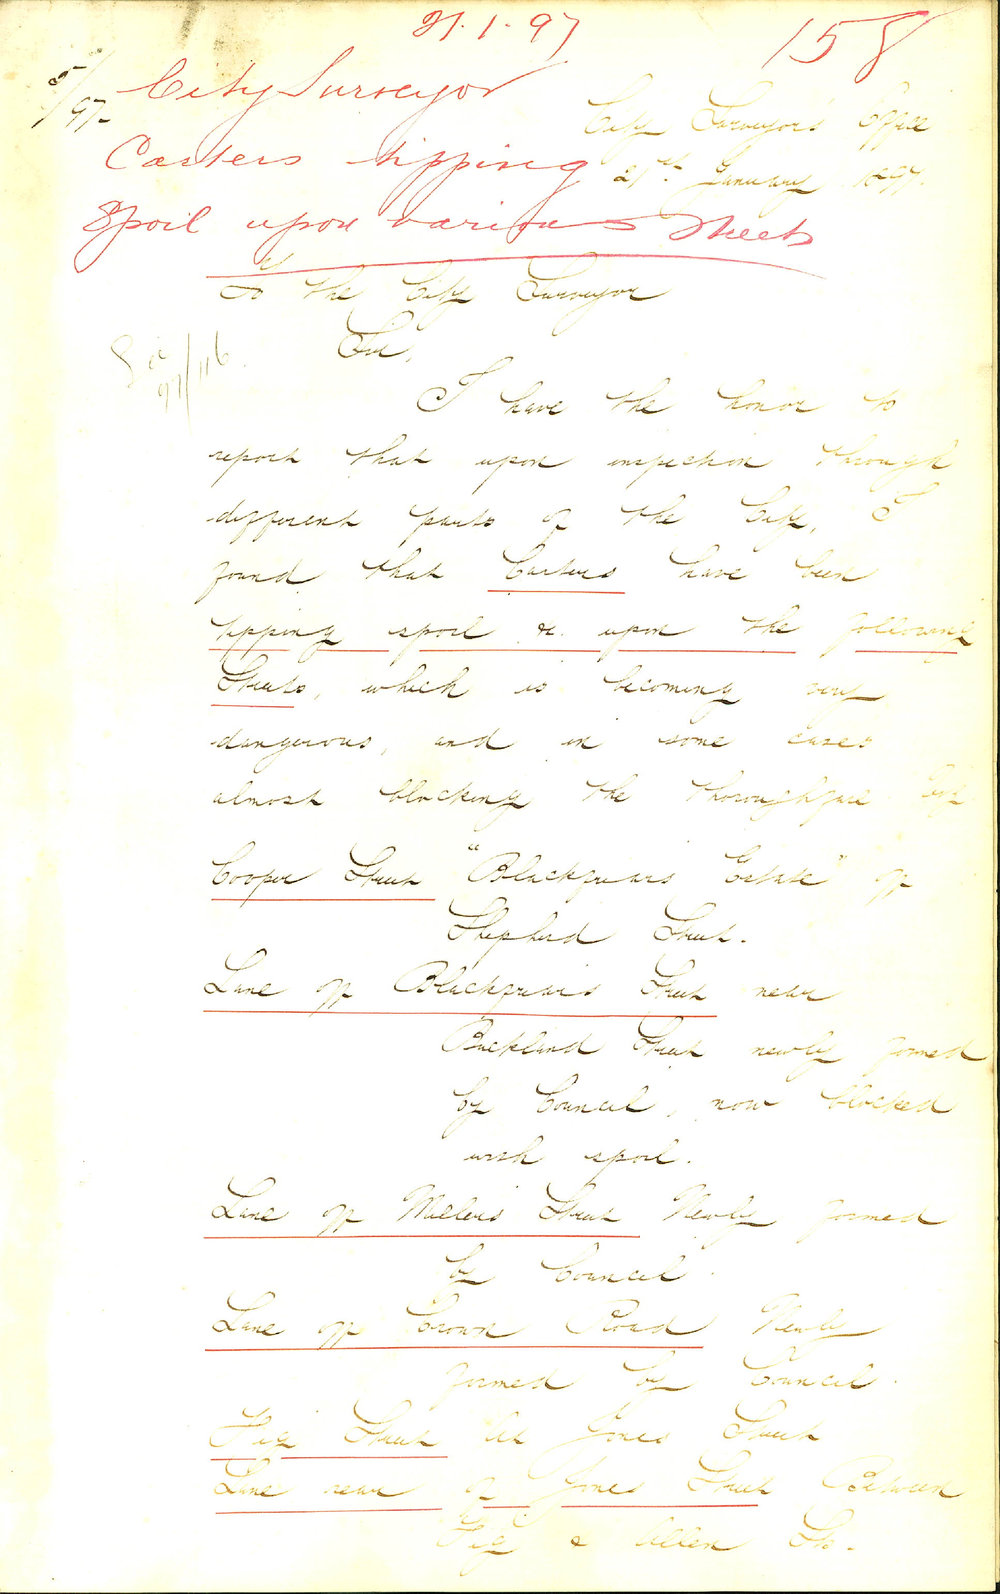 21.1.97
158
5/97-
City Surveyor
Carters tipping
Spoil upon various Streets
City Surveyor's Office
21st January 1897.
To the City Surveyor
Sir,
See
97/116.
I have the honor to
report that upon inspection through
different parts of the City, I
found that Carters have been
tipping spoil &c. upon the following
Streets, which is becoming very
dangerous, and in some cases
almost blocking the thoroughfare
Cooper Street "Blackfriars Estate" off
Shepherd Street.
Lane off Blackfriars Street near
Buckland Street newly formed
by Council, now blocked
with spoil.
Lane off Millers Street Newly formed
by Council.
Lane off Crown Road Newly
formed by Council.
Fig Street at Jones Street
Lane rear of Jones Street Between
Fig & Allen Sts.